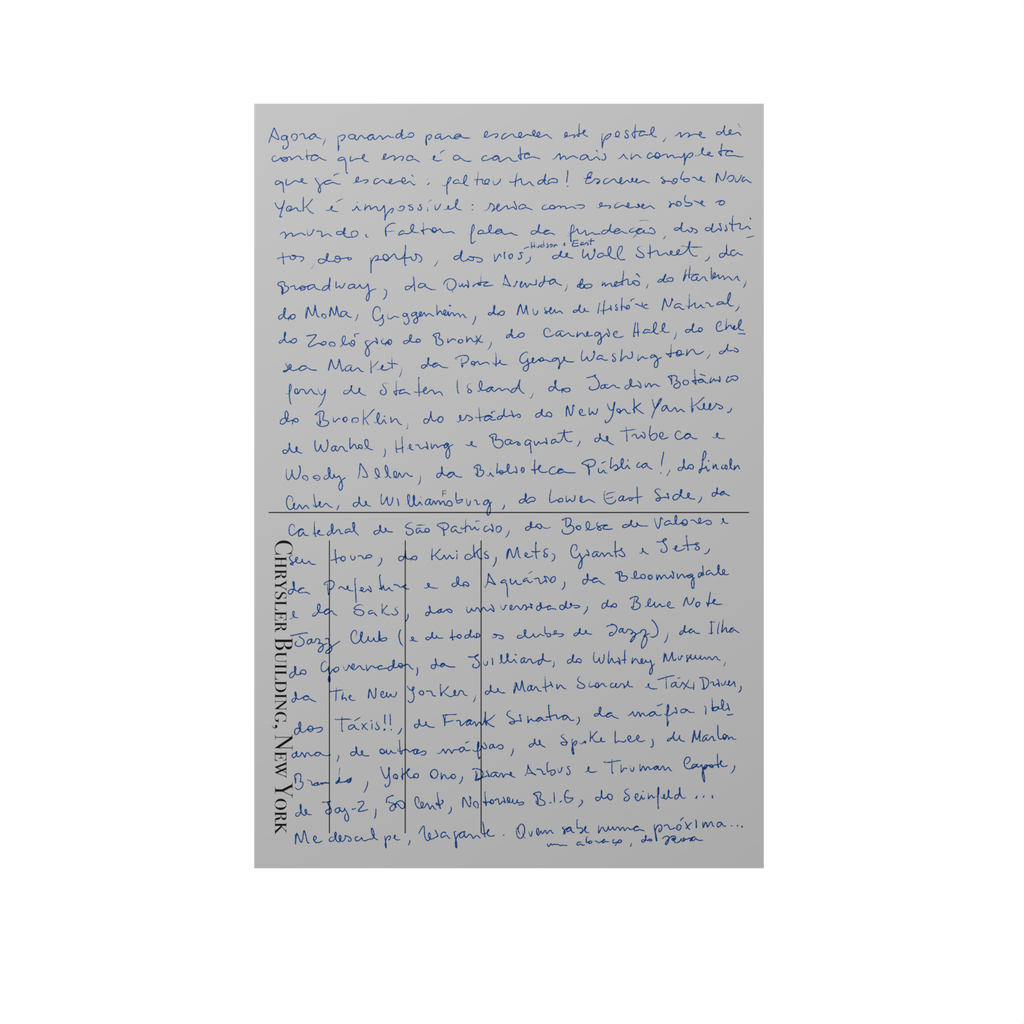 Agora, parando para escrever este postal, me dei
conta que essa é a carta mais incompleta
que já escrevi: faltou tudo! Escrever sobre Nova
York é impossível: seria como escrever sobre o
mundo. Faltou falar da fundação, dos distri-
tos, dos portos, dos rios, Hudson e East de Wall Street, da
Broadway, da Quinta Avenida, do metrô, do Harlem,
do MoMa, Guggenheim, do Museu de História Natural,
do Zoológico do Bronx, do Carnegie Hall, do Chel-
sea Market, da Ponte George Washington, do
ferry de Staten Island, do Jardim Botânico
do Brooklin, do estádio do New York Yankees,
de Warhol, Hering e Basquiat, de Tribeca e
Woody Allen, da Biblioteca Pública!, do Lincoln
Center, de Williamsburg, do Lower East Side, da
Catedral de São Patrício, da Bolsa de Valores e
seu touro, do Knicks, Mets, Giants e Jets,
da Prefeitura e do Aquário, da Bloomingdale
e da Saks, das universidades, do Blue Note
Jazz Club (e de todo os clubes de Jazz), da Ilha
do Governador, da Juilliard, do Whitney Museum,
da The New Yorker, de Martin Scorcese e Táxi Driver,
dos Táxis!!, de Frank Sinatra, da máfia itali-
ana, de outras máfias, de Spike Lee, de Marlon
Brando, Yoko Ono, Diane Arbus e Truman Capote,
de Jay-Z, 50 Cent, Notorious B.I.G, do Seinfeld ...
Me desculpe, . Quem sabe numa próxima...
um abraço, do
CHRYSLER BUILDING, NEW YORK